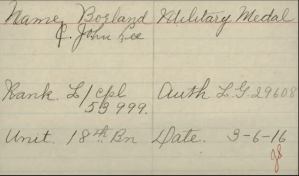 Name Borland Military Medal
C. John Lee
Rank L/cpl Auth L.G. 29608
53999.
Unit. 18th Bn Date. 3-6-16